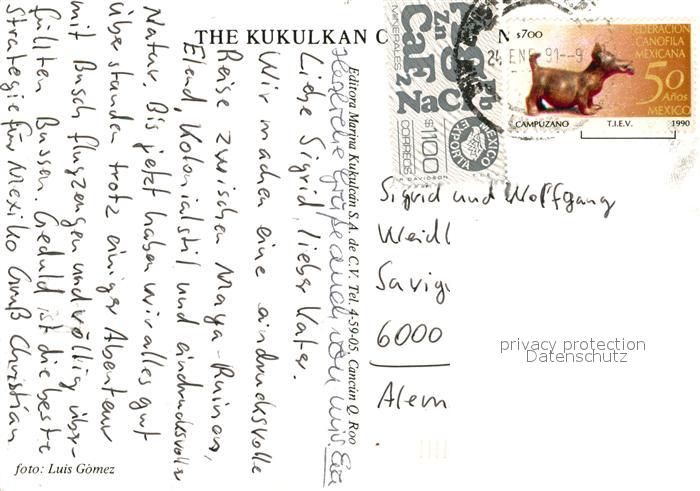 THE KUKULKAN C
N
MINERALES
Zn
CaF2
NaCl
Pb
$1100
CORREOS
MEXICO
EXPORTA
$700
FEDERACION
CANOFILA
MEXICANA
50
Años
MEXICO
CAMPUZANO T.I.E.V. 1990
24 ENE 91 --9
Herzliche Grüße auch von mir. Eva
Liebe Sigrid, lieber Vater.
Wir machen eine eindrucksvolle
Reise zwischen Maya-Ruinen,
Elend, Kolonialstil und eindrucksvoller
Natur. Bis jetzt haben wir alles gut
überstanden trotz einiger Abenteuer
mit Busch flugzeugen und völlig über-
füllten Bussen. Geduld ist die beste
Strategie für Mexiko Gruß Christian
Editora Marina Kukulcán S.A. de C.V. Tel. 4-59-05. Cancún Q. Roo
Sigrid und Wolfgang
Weidl
Savig
6000
Alem
privacy protection
Datenschutz
foto: Luis Gómez